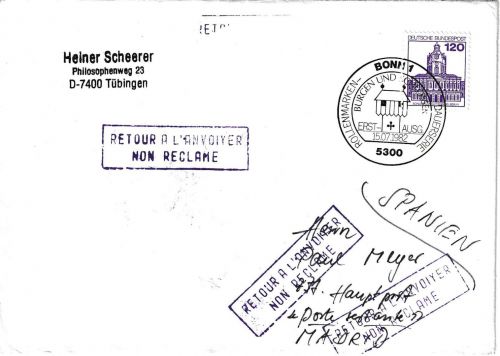 RET
Heiner Scheerer
Philosophenweg 23
D-7400 Tübingen
DEUTSCHE BUNDESPOST
120
BONN 1
ROLLENMARKEN-DAUERSERIE
BURGEN UND
ERST-AUSG.
15.07.1982
5300
RETOUR A L'ANVOIYER
NON RECLAME
SPANIEN
Herrn
Paul Meyer
Hauptpost
poste restante
MADRID
RETOUR A L'ANVOIYER
NON RECLAME
RETOUR A L'ANVOIYER
NON RECLAME